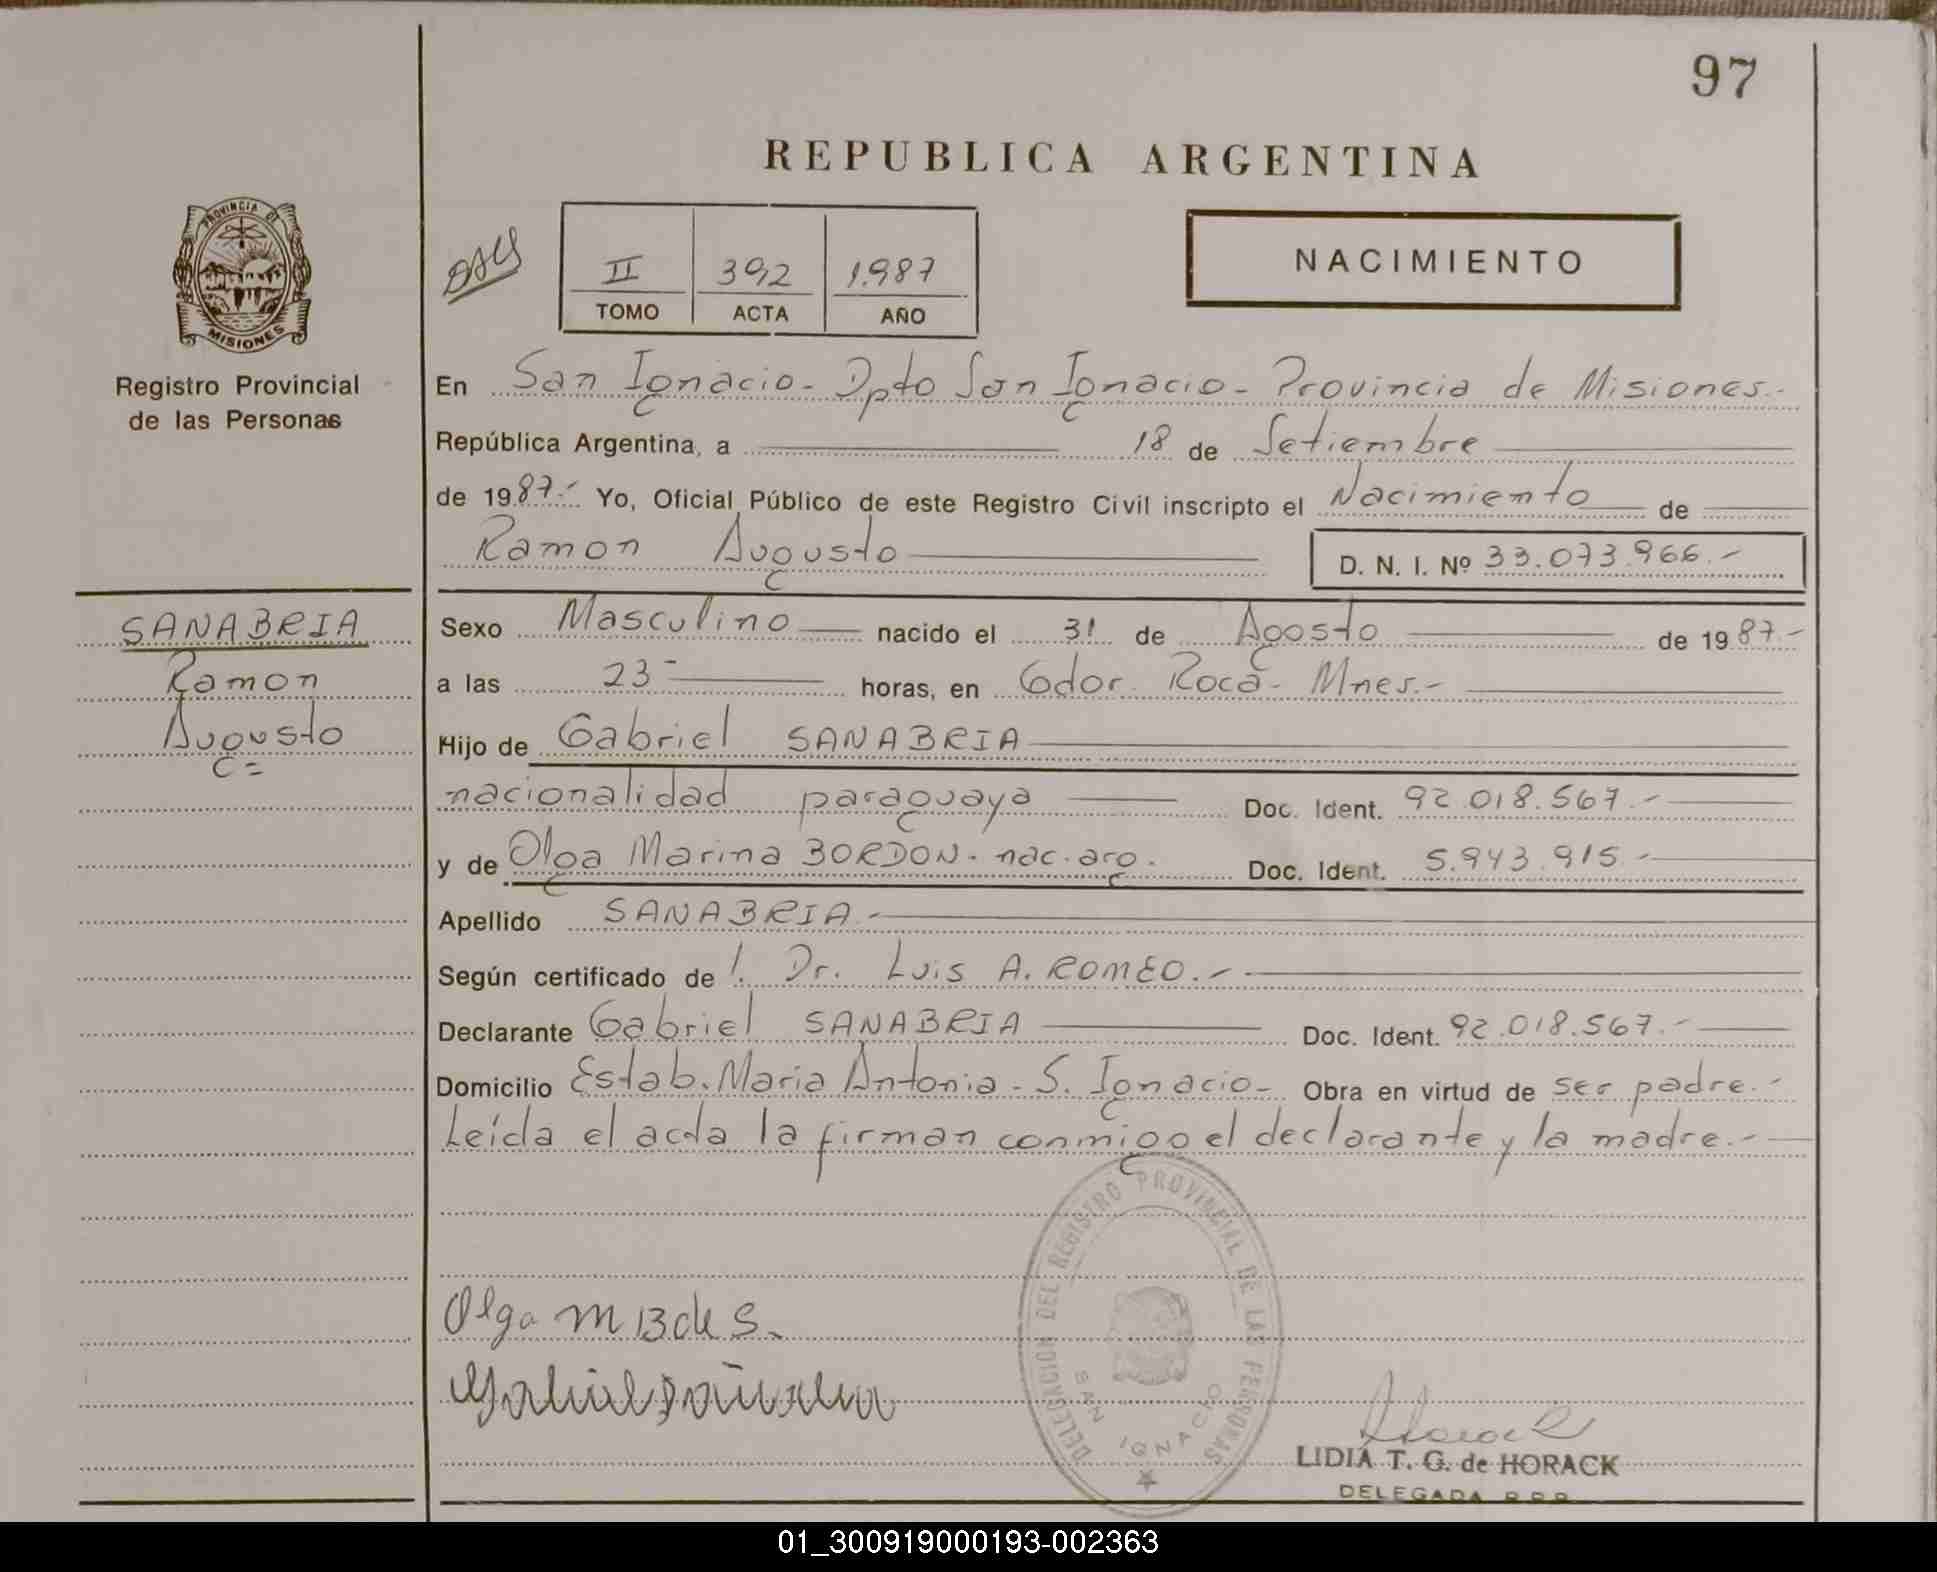 97
REPUBLICA ARGENTINA
PROVINCIA DE
MISIONES
Registro Provincial
de las Personas
II 392 1.987
TOMO ACTA AÑO
NACIMIENTO
En San Ignacio - Dpto San Ignacio - Provincia de Misiones.-
República Argentina, a 18 de Setiembre
de 1987.- Yo, Oficial Público de este Registro Civil inscripto el Nacimiento de
Ramon Augusto
D. N. I. Nº 33.073.966.-
SANABRIA
Ramon
Augusto =
Sexo Masculino nacido el 31 de Agosto de 1987.-
a las 23- horas, en Gdor. Roca - Mnes.-
Hijo de Gabriel SANABRIA
nacionalidad paraguaya Doc. Ident. 92.018.567.-
y de Olga Marina BORDON. nac. arg. Doc. Ident. 5.943.915.-
Apellido SANABRIA.-
Según certificado de l. Dr. Luis A. ROMEO.-
Declarante Gabriel SANABRIA Doc. Ident. 92.018.567.-
Domicilio Estab. Maria Antonia - S. Ignacio - Obra en virtud de ser padre.-
Leída el acta la firman conmigo el declarante y la madre.-
DELEGACION DEL REGISTRO PROVINCIAL DE LAS PERSONAS
SAN IGNACIO
Olga M B de S.
LIDIA T. G. de HORACK
DELEGADA R.P.P.
01_300919000193-002363